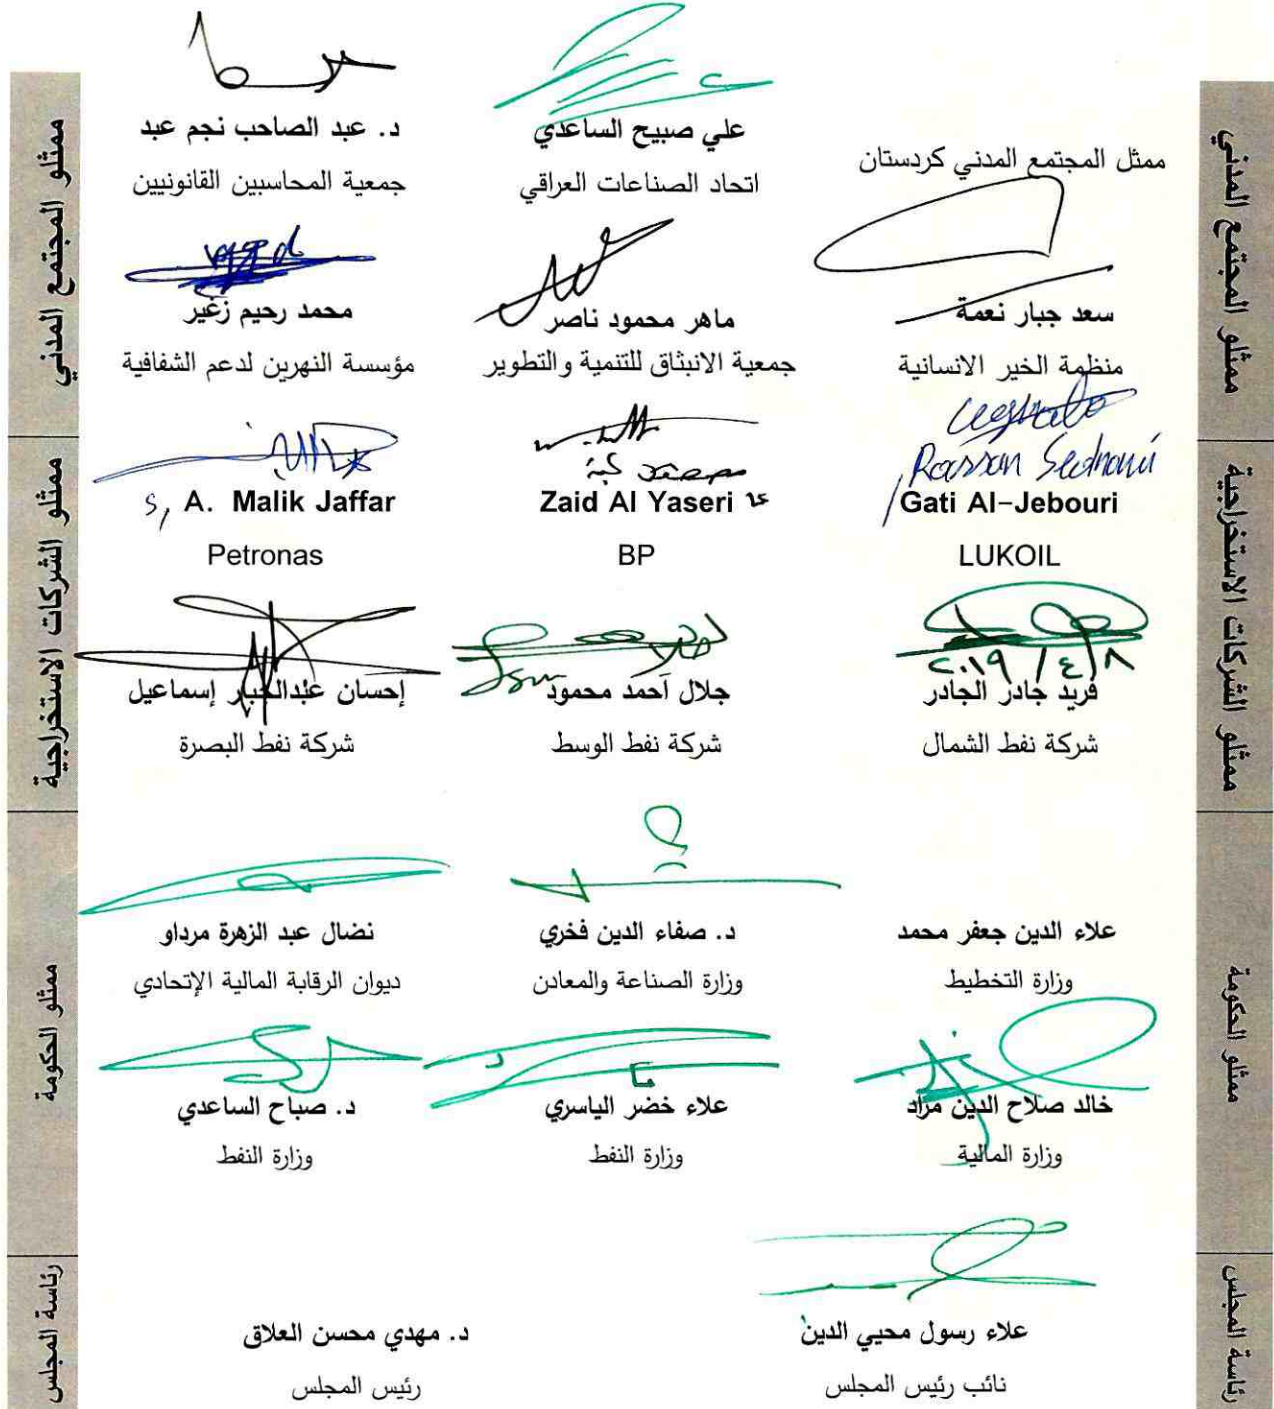 ممثلو المجتمع المدني
ممثل المجتمع المدني كردستان
علي صبيح الساعدي
اتحاد الصناعات العراقي
د. عبد الصاحب نجم عبد
جمعية المحاسبين القانونيين
سعد جبار نعمة
منظمة الخير الانسانية
ماهر محمود ناصر
جمعية الانبثاق للتنمية والتطوير
محمد رحيم زغير
مؤسسة النهرين لدعم الشفافية
ممثلو المجتمع المدني
ممثلو الشركات الاستخراجية
Gati Al-Jebouri
LUKOIL
Zaid Al Yaseri
BP
A. Malik Jaffar
Petronas
٢٠١٩ / ٤ / ٨
فريد جادر الجادر
شركة نفط الشمال
جلال احمد محمود
شركة نفط الوسط
إحسان عبدالجبار إسماعيل
شركة نفط البصرة
ممثلو الشركات الاستخراجية
ممثلو الحكومة
علاء الدين جعفر محمد
وزارة التخطيط
د. صفاء الدين فخري
وزارة الصناعة والمعادن
نضال عبد الزهرة مرداو
ديوان الرقابة المالية الإتحادي
خالد صلاح الدين مراد
وزارة المالية
علاء خضر الياسري
وزارة النفط
د. صباح الساعدي
وزارة النفط
ممثلو الحكومة
رئاسة المجلس
علاء رسول محيي الدين
نائب رئيس المجلس
د. مهدي محسن العلاق
رئيس المجلس
رئاسة المجلس